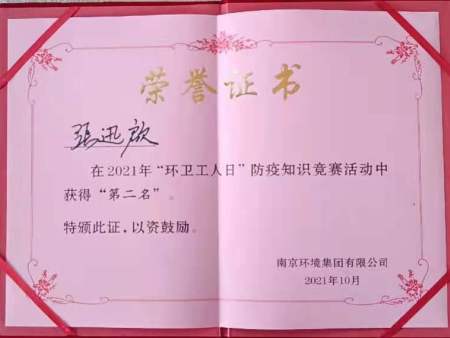 荣誉证书
張迅啟
在2021年“环卫工人日”防疫知识竞赛活动中
获得“第二名”。
特颁此证，以资鼓励。
南京环境集团有限公司
2021年10月